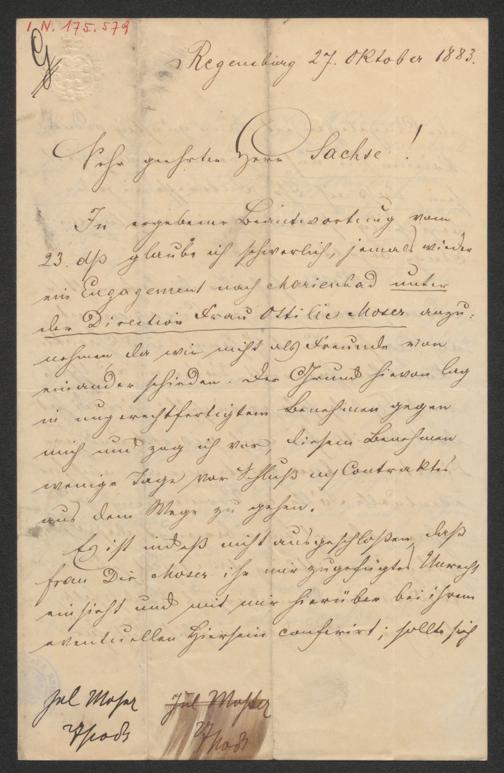 I. N. 175.579
G
Regensburg 27. Oktober 1883.
Sehr geehrter Herr Sachse!
In ergebener Beantwortung vom
23. dß glaube ich schwerlich, jemals wieder
ein Engagement nach Marienbad unter
der Direction Frau Ottilie Moser anzu=
nehmen da wir nicht als Freunde von
einander schieden. Der Grund hievon lag
in ungerechtfertigtem Benehmen gegen
mich und zog ich vor, diesem Benehmen
wenige Tage vor Schluß des Contraktes
aus dem Wege zu gehen.
Es ist indeß nicht ausgeschloßen, daß
Frau Dir. Moser ihr mir zugefügtes Unrecht
einsieht und mit mir hierüber bei ihrem
eventuellen Hiersein conferirt; sollte sich
Jul Moser
Jul Moser